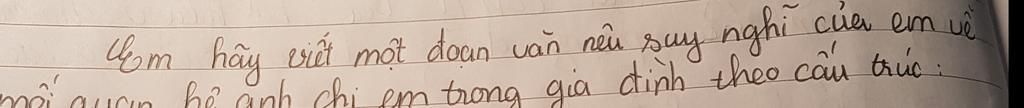 Em hãy viết một đoạn văn nêu suy nghĩ của em về
mối quan hệ anh chị em trong gia đình theo cấu trúc: